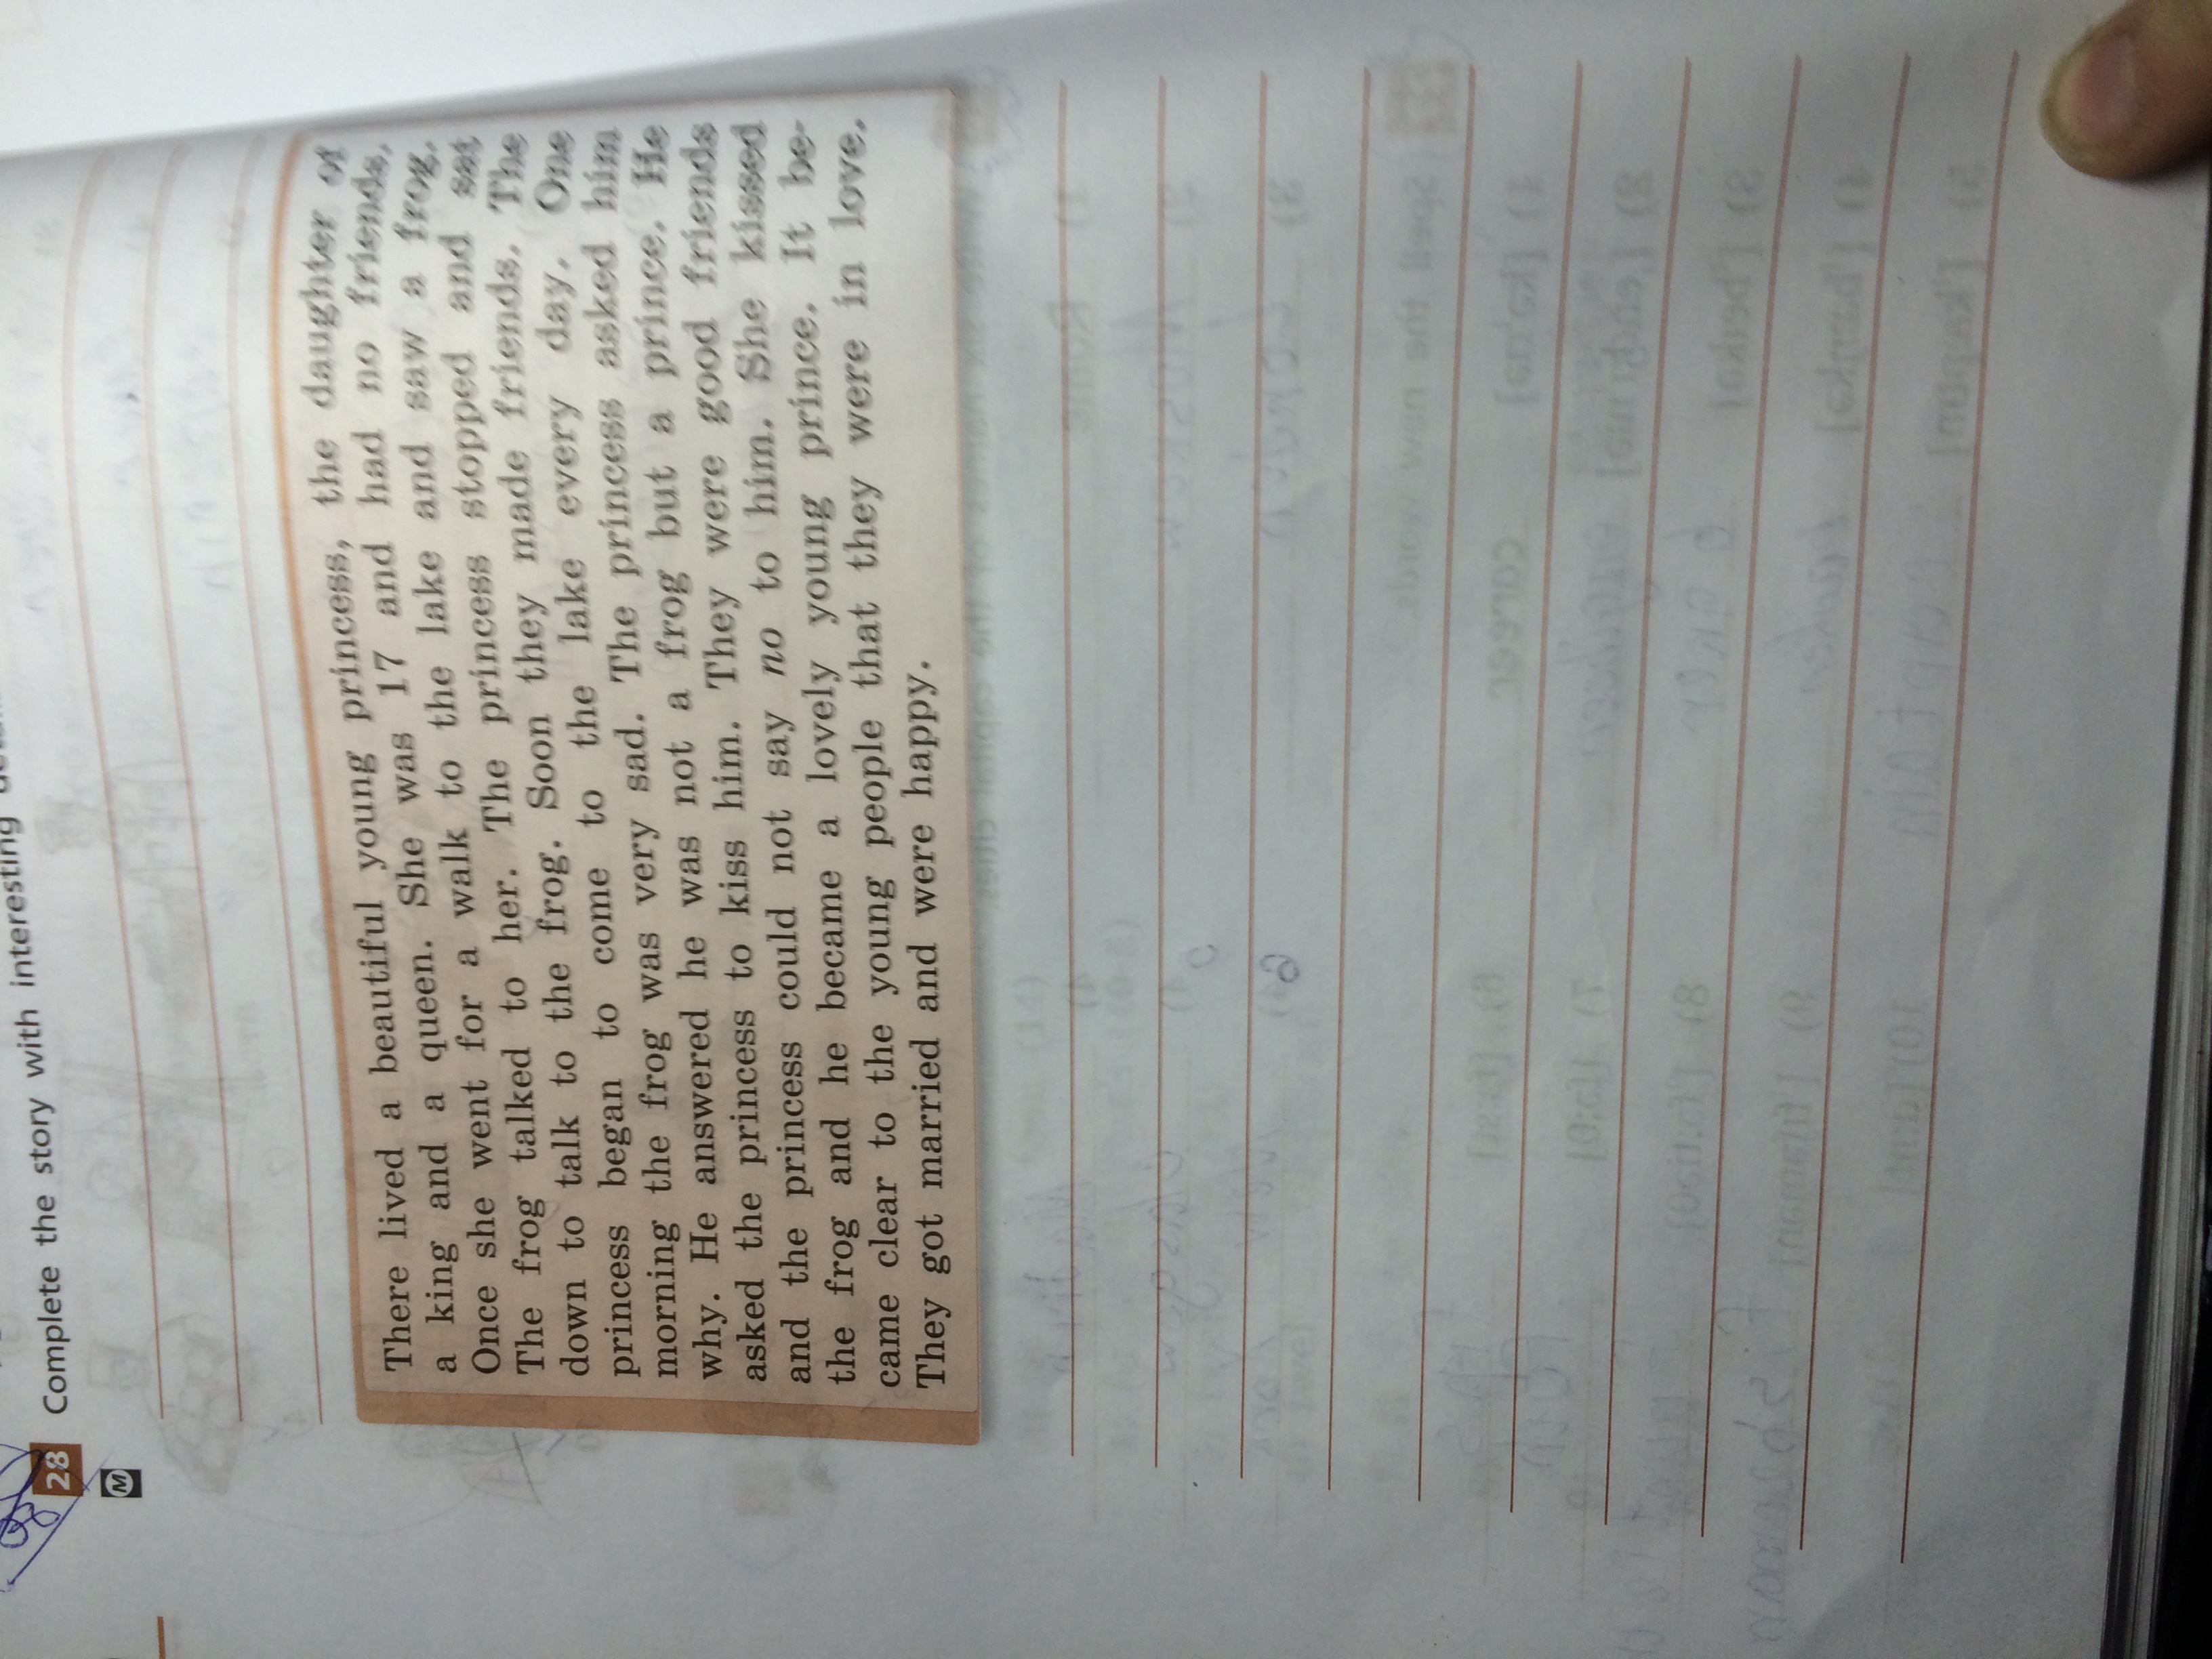 28 Complete the story with interesting
M
There lived a beautiful young princess, the daughter of
a king and a queen. She was 17 and had no friends.
Once she went for a walk to the lake and saw a frog.
The frog talked to her. The princess stopped and sat
down to talk to the frog. Soon they made friends. The
princess began to come to the lake every day. One
morning the frog was very sad. The princess asked him
why. He answered he was not a frog but a prince. He
asked the princess to kiss him. They were good friends
and the princess could not say no to him. She kissed
the frog and he became a lovely young prince. It be-
came clear to the young people that they were in love.
They got married and were happy.